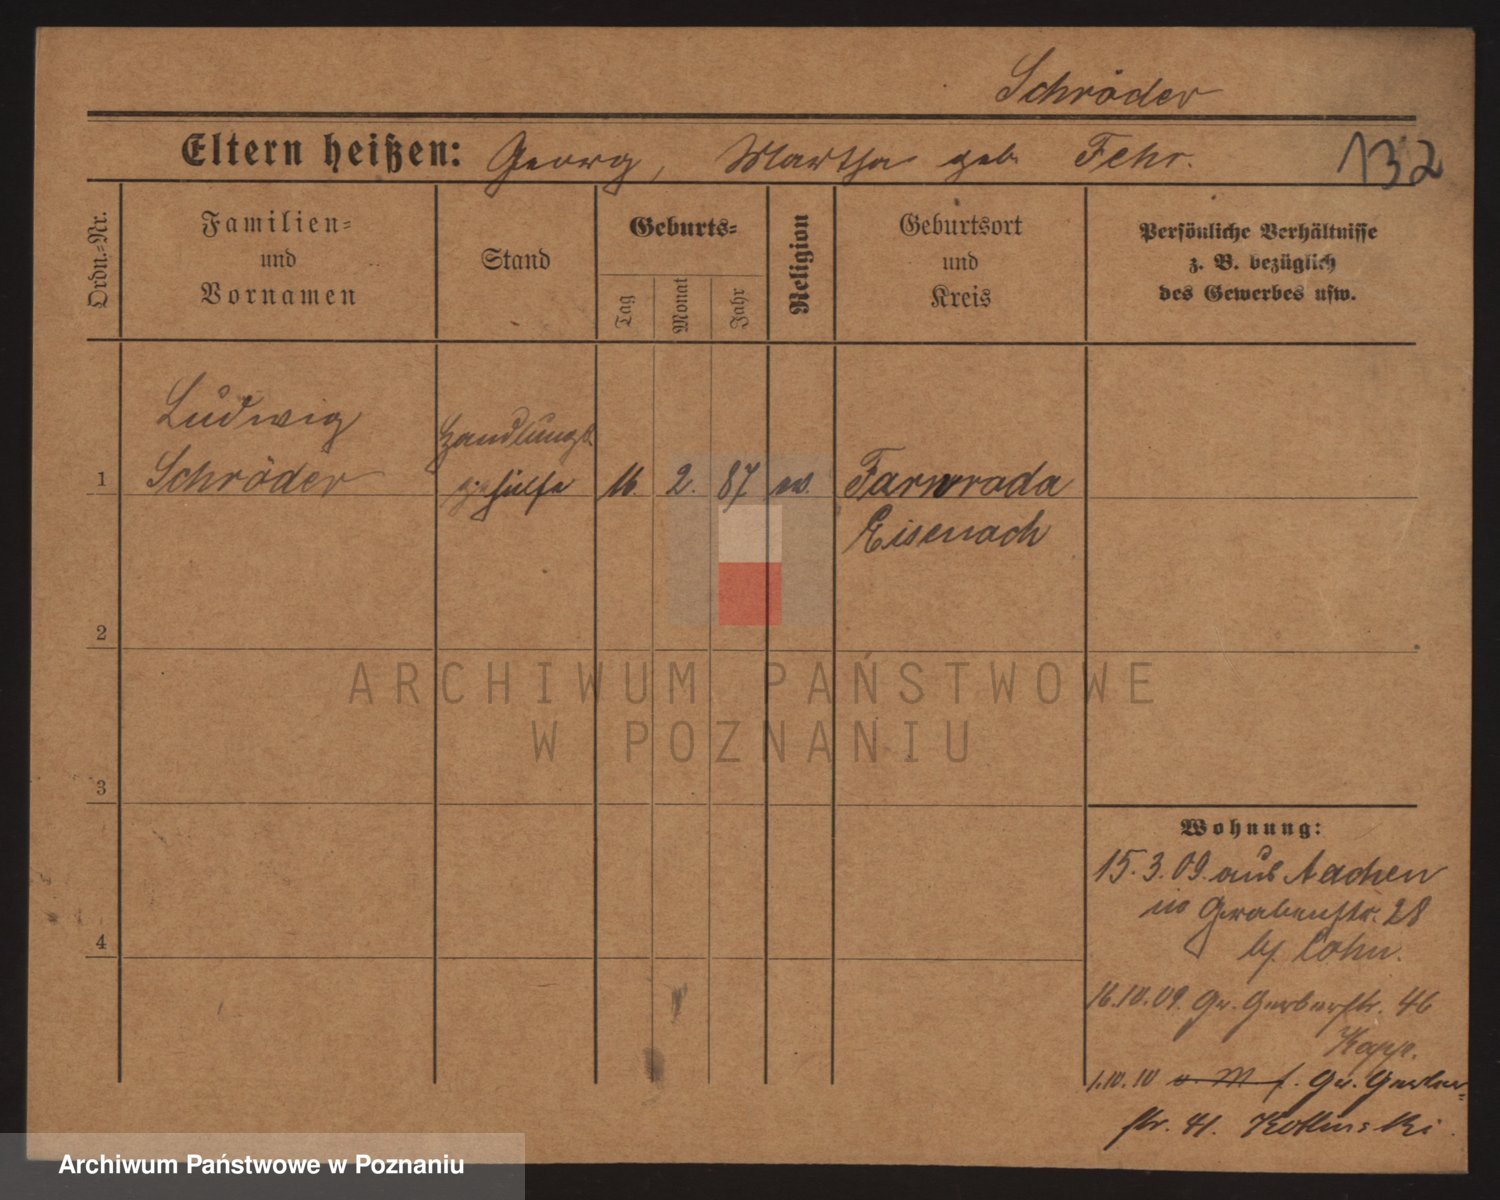 Schröder
Eltern heißen: Georg, Martha geb. Fehr.
132
Ordn.-Nr.
Familien-
und
Vornamen
Stand
Geburts-
Tag
Monat
Jahr
Religion
Geburtsort
und
Kreis
Persönliche Verhältnisse
z. B. bezüglich
des Gewerbes usw.
Ludwig
Schröder
Handlungs
gehülfe
1
16. 2. 87 ev. Farnroda
Eisenach
2
3
4
ARCHIWUM PAŃSTWOWE
W POZNANIU
Wohnung:
15.3.09. aus Aachen
in Grabenstr. 28
bf. Cohn.
16.10.09. Gr. Gerberstr. 46
Kopp.
1.10.10 Gr. Gerber-
str. 41.
Archiwum Państwowe w Poznaniu